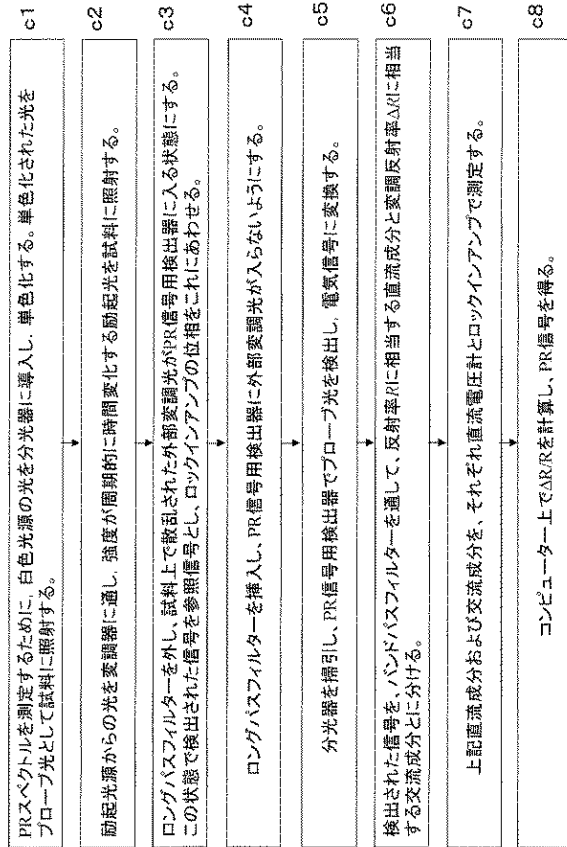 PRスペクトルを測定するために、白色光源の光を分光器に導入し、単色化する。単色化された光を
プローブ光として試料に照射する。
c1
励起光源からの光を変調器に通し、強度が周期的に時間変化する励起光を試料に照射する。
c2
ロングパスフィルターを外し、試料上で散乱された外部変調光がPR信号用検出器に入る状態にする。
この状態で検出された信号を参照信号とし、ロックインアンプの位相をこれにあわせる。
c3
ロングパスフィルターを挿入し、PR信号用検出器に外部変調光が入らないようにする。
c4
分光器を掃引し、PR信号用検出器でプローブ光を検出し、電気信号に変換する。
c5
検出された信号を、バンドパスフィルターを通して、反射率Rに相当する直流成分と変調反射率ΔRに相当
する交流成分とに分ける。
c6
上記直流成分および交流成分を、それぞれ直流電圧計とロックインアンプで測定する。
c7
コンピューター上でΔR/Rを計算し、PR信号を得る。
c8